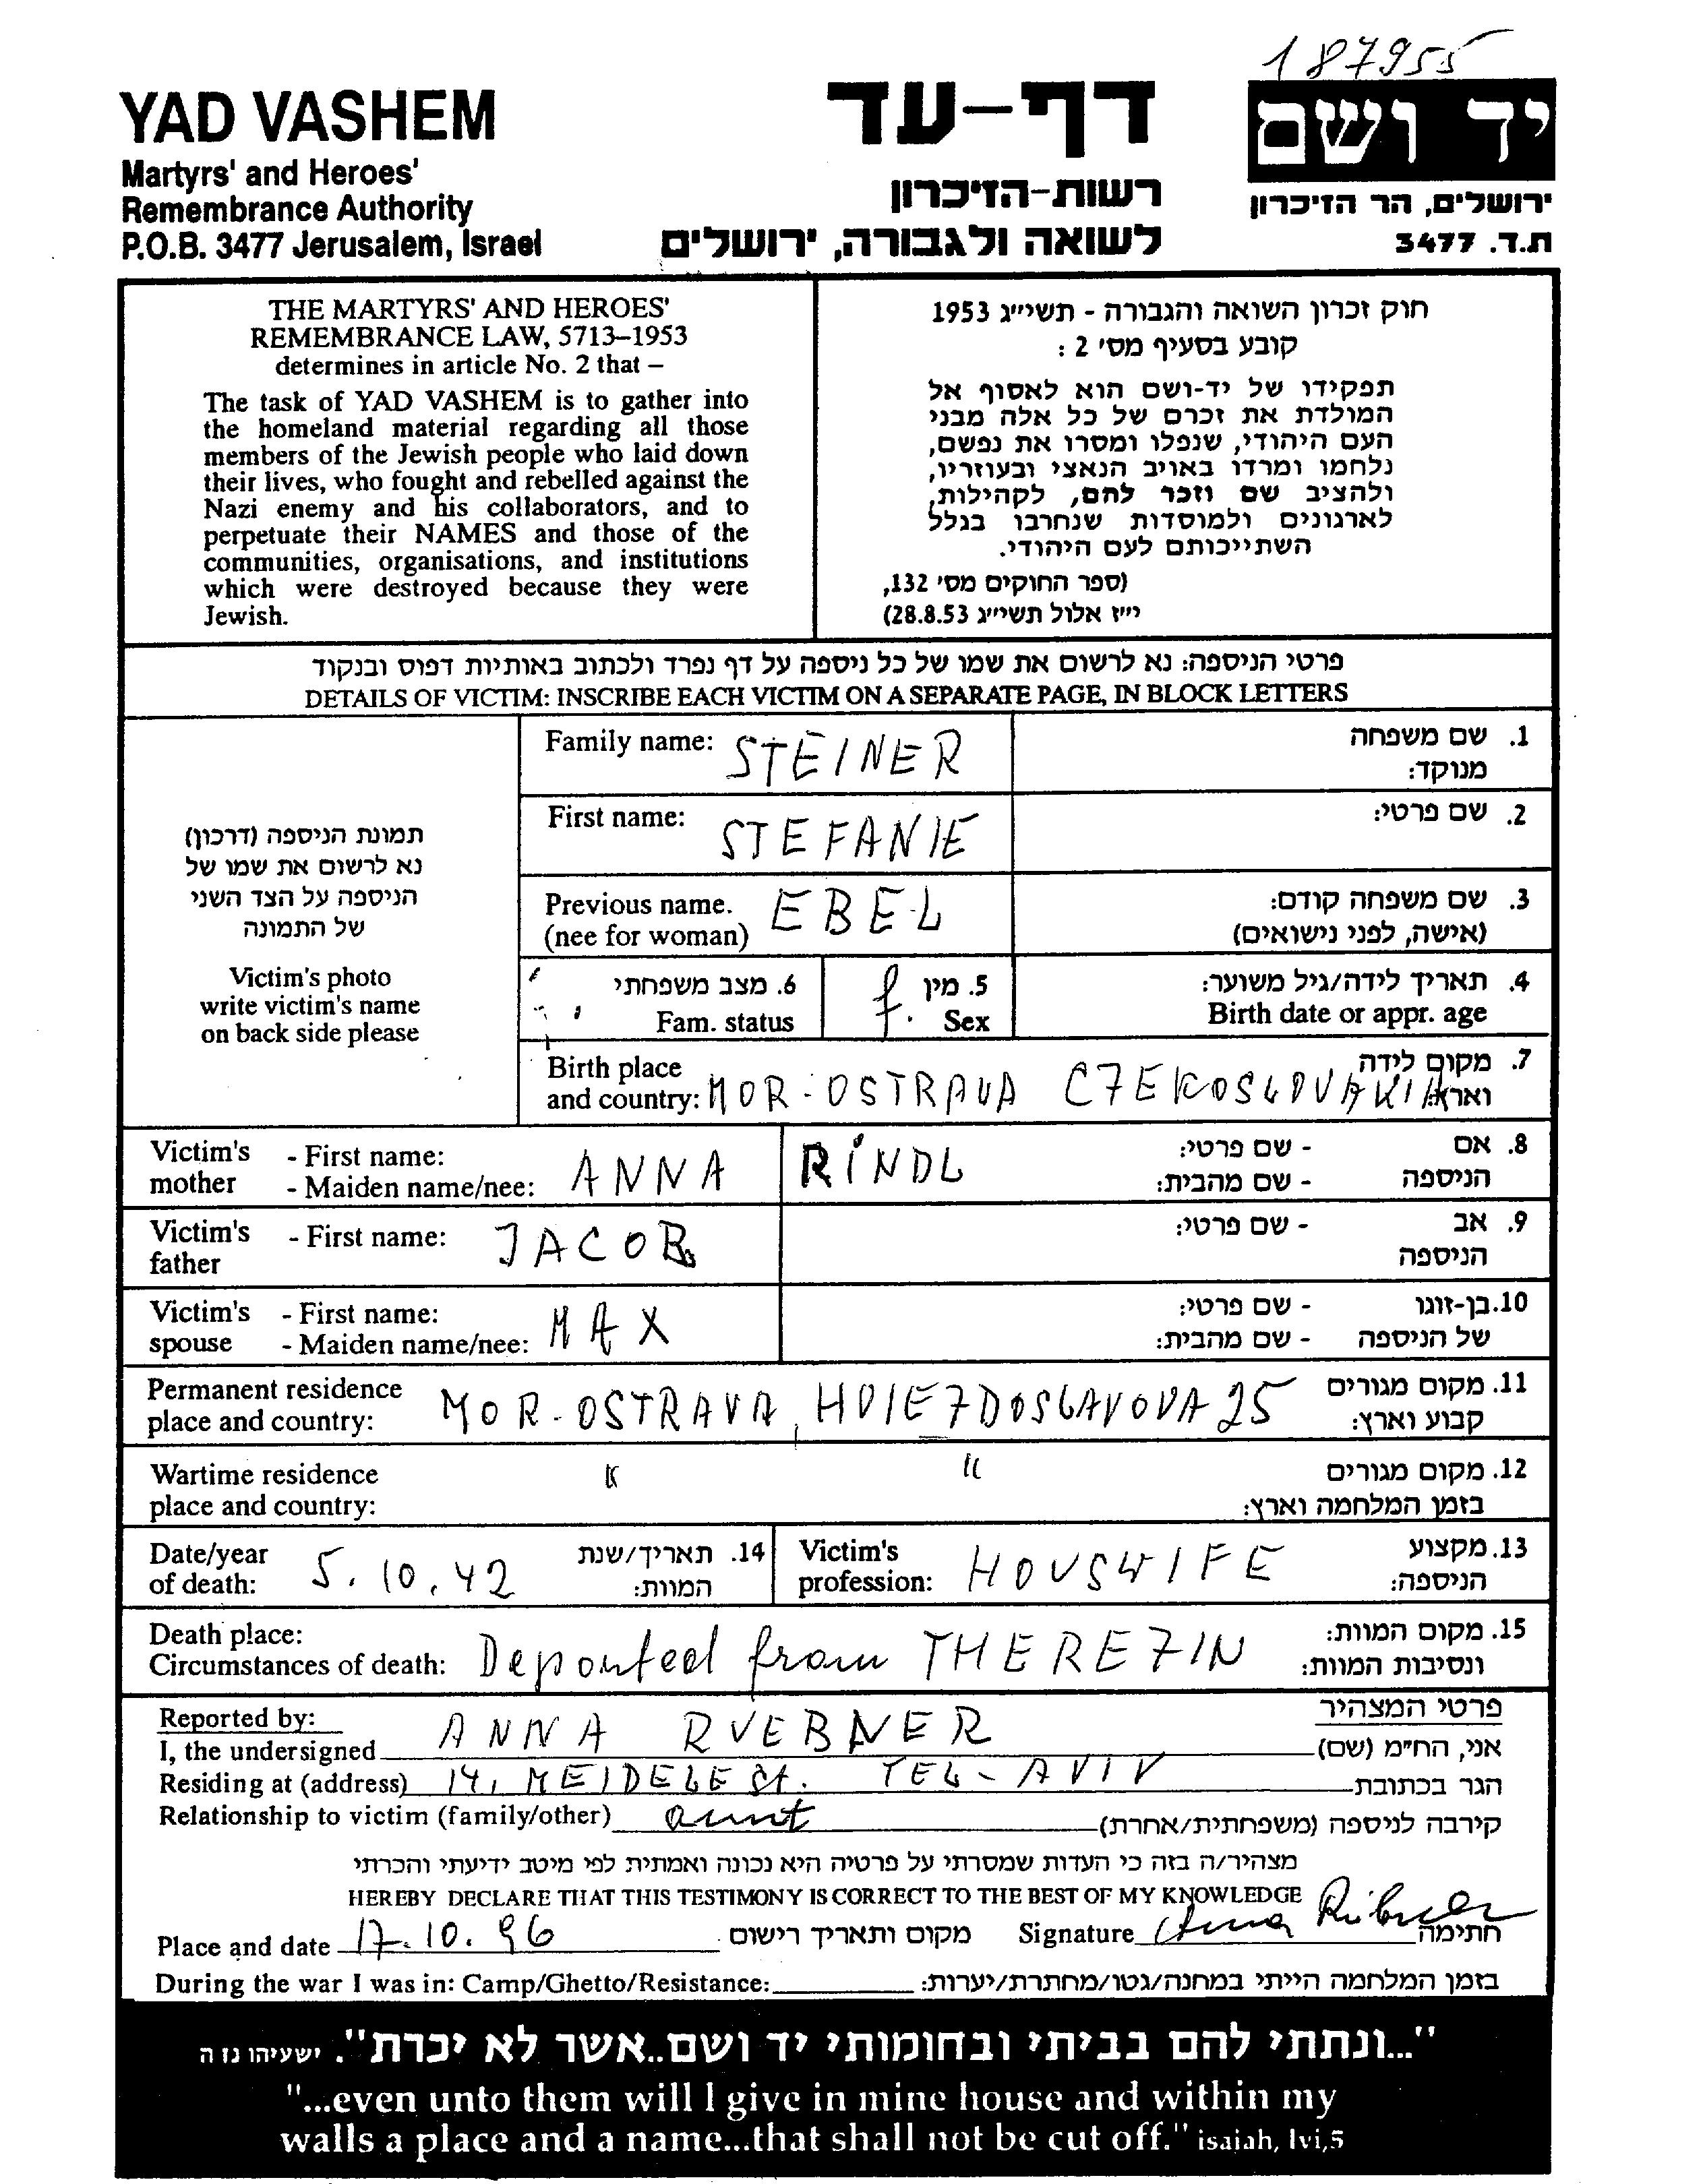 187955
YAD VASHEM
Martyrs' and Heroes'
Remembrance Authority
P.O.B. 3477 Jerusalem, Israel
דף-עד
רשות-הזיכרון
לשואה ולגבורה, ירושלים
יד ושם
ירושלים, הר הזיכרון
ת.ד. 3477
THE MARTYRS' AND HEROES'
REMEMBRANCE LAW, 5713–1953
determines in article No. 2 that –
The task of YAD VASHEM is to gather into
the homeland material regarding all those
members of the Jewish people who laid down
their lives, who fought and rebelled against the
Nazi enemy and his collaborators, and to
perpetuate their NAMES and those of the
communities, organisations, and institutions
which were destroyed because they were
Jewish.
חוק זכרון השואה והגבורה - תשי״ג 1953
קובע בסעיף מס' 2 :
תפקידו של יד-ושם הוא לאסוף אל
המולדת את זכרם של כל אלה מבני
העם היהודי, שנפלו ומסרו את נפשם,
נלחמו ומרדו באויב הנאצי ובעוזריו,
ולהציב שם וזכר להם, לקהילות,
לארגונים ולמוסדות שנחרבו בגלל
השתייכותם לעם היהודי.
(ספר החוקים מס' 132,
י״ז אלול תשי״ג 28.8.53)
פרטי הניספה: נא לרשום את שמו של כל ניספה על דף נפרד ולכתוב באותיות דפוס ובנקוד
DETAILS OF VICTIM: INSCRIBE EACH VICTIM ON A SEPARATE PAGE, IN BLOCK LETTERS
תמונת הניספה (דרכון)
נא לרשום את שמו של
הניספה על הצד השני
של התמונה
Victim's photo
write victim's name
on back side please
Family name: STEINER
1. שם משפחה
מנוקד:
First name: STEFANIE
2. שם פרטי:
Previous name. EBEL
(nee for woman)
3. שם משפחה קודם:
(אישה, לפני נישואים)
6. מצב משפחתי
Fam. status
5. מין f.
Sex
4. תאריך לידה/גיל משוער:
Birth date or appr. age
Birth place
and country: MOR-OSTRAVA CZEKOSLOVAKIA
7. מקום לידה
וארץ:
Victim's mother - First name:
- Maiden name/nee: ANNA RINDL
8. אם הניספה - שם פרטי:
- שם מהבית:
Victim's father - First name: JACOB
9. אב הניספה - שם פרטי:
Victim's spouse - First name:
- Maiden name/nee: MAX
10. בן-זוגו של הניספה - שם פרטי:
- שם מהבית:
Permanent residence
place and country: MOR-OSTRAVA, HVIEZDOSLAVOVA 25
11. מקום מגורים
קבוע וארץ:
Wartime residence
place and country: " "
12. מקום מגורים
בזמן המלחמה וארץ:
Date/year
of death: 5.10.42
14. תאריך/שנת
המוות:
Victim's
profession: HOUSWIFE
13. מקצוע
הניספה:
Death place:
Circumstances of death: Deported from THEREZIN
15. מקום המוות:
ונסיבות המוות:
Reported by:
פרטי המצהיר
I, the undersigned ANNA RUEBNER אני, הח״מ (שם)
Residing at (address) 14, MEIDELE St. TEL-AVIV הגר בכתובת
Relationship to victim (family/other) aunt קירבה לניספה (משפחתית/אחרת)
מצהיר/ה בזה כי העדות שמסרתי על פרטיה היא נכונה ואמתית לפי מיטב ידיעתי והכרתי
HEREBY DECLARE THAT THIS TESTIMONY IS CORRECT TO THE BEST OF MY KNOWLEDGE
Place and date 17.10.96 מקום ותאריך רישום Signature Anna Rübner חתימה
During the war I was in: Camp/Ghetto/Resistance: בזמן המלחמה הייתי במחנה/גטו/מחתרת/יערות:
"...ונתתי להם בביתי ובחומותי יד ושם..אשר לא יכרת". ישעיהו נו ה
"...even unto them will I give in mine house and within my
walls a place and a name...that shall not be cut off." isaiah, lvi,5